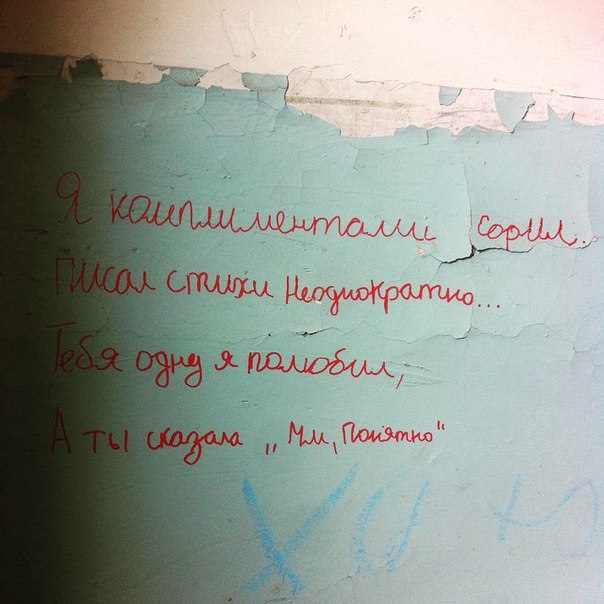 Я комплиментами сорил..
Писал стихи Неоднократно...
Тебя одну я полюбил,
А ты сказала „Мм, Понятно“